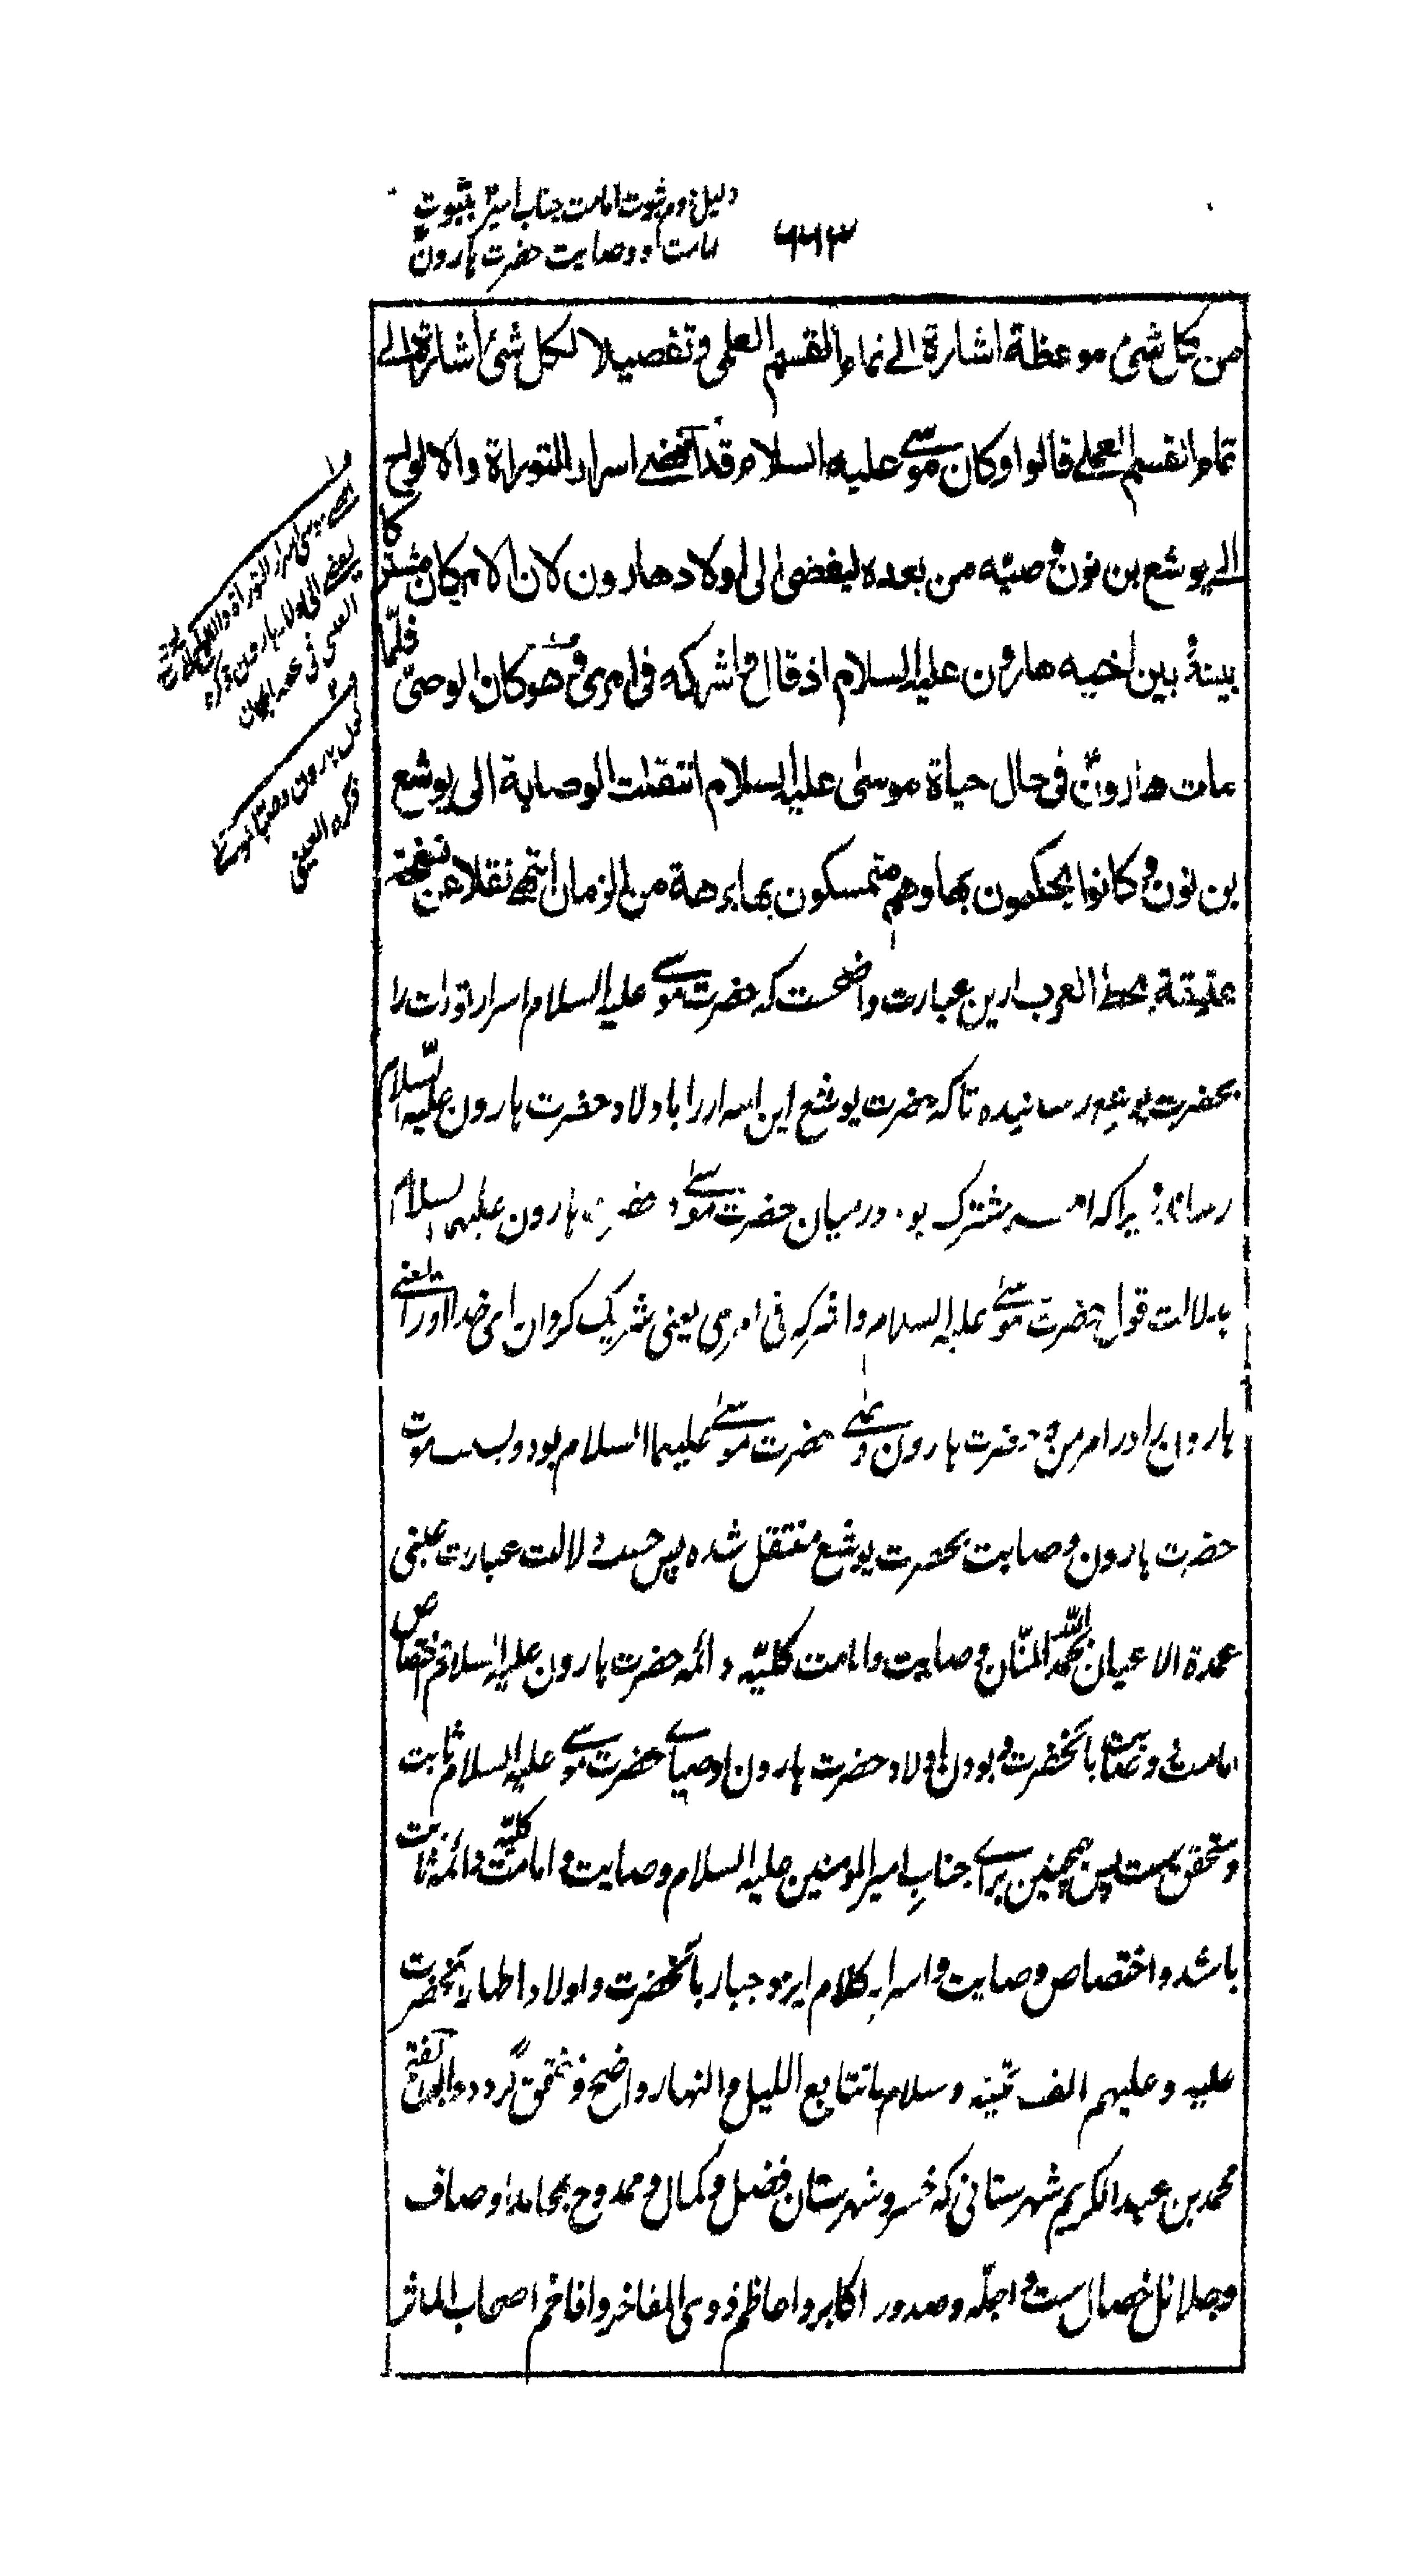 دلیل دوم ثبوت امامت جناب امیرؑ بثبوت
امامت و وصایت حضرت هارونؑ
۶۶۳
من کل شئ موعظة اشارة الی تمام القسم العلمی و تفصیلا لکل شئ اشارة الی
تمام القسم العملی قالوا و کان موسی علیه السلام قد افضی اسرار التوراة والالواح
الی یوشع بن نون وصیّه من بعده لیفضی الی اولاد هارون لان الامر کان مشترکا
بینهٗ و بین اخیه هارون علیه السلام اذ قال و اشرکه فی امری و هو کان الوصیّ فلمّا
مات هارونؑ فی حال حیاة موسی علیه السلام انتقلت الوصایة الی یوشع
بن نون و کانوا یحکمون بها وهم متمسکون بها برهة من الزمان انتهی نقلا عن نسخة
عتیقة بخط العرب ازین عبارت واضحست که حضرت موسی علیه السلام اسرار تورات را
بحضرت یوشع رسانیده تا که حضرت یوشع این اسرار را باولاد حضرت هارون علیه السّلام
رساند زیرا که امر مشترک بود درمیان حضرت موسی و حضرت هارون علیهما السلام
بدلالت قول حضرت موسی علیه السلام و اشرکه فی امری یعنی شریک گردان ای خدا او را یعنی
هارون را در امر من و حضرت هارون وصی حضرت موسی علیهما السلام بود و بسبب موت
حضرت هارون وصایت بحضرت یوشع منتقل شده پس حسب دلالت عبارت عینی
عمدة الاعیان بحمد الله المنّان وصایت و امامت کلیّه دائمه حضرت هارون علیه السلام و اختصاص
امامت و وصایت بآنحضرت و بودن اولاد حضرت هارون اوصیای حضرت موسی علیه السلام ثابت
و متحقق هست پس همچنین برای جناب امیر المومنین علیه السلام وصایت و امامت کلیّه دائمه ثابت
باشد و اختصاص وصایت و اسرار کلام ایزد جبار بآنحضرت و اولاد اطهار آنحضرت
علیه و علیهم الف تحیّة و سلام ما تتابع اللیل و النهار واضح و متحقق گردد و ابوالفتح
محمد بن عبد الکریم شهرستانی که خسرو شهرستان فضل و کمال و ممدوح بمحامد اوصاف
و جلائل خصال ست و اجلّه و صدور اکابر و اعاظم ذوی المفاخر و افاخم اصحاب المآثر